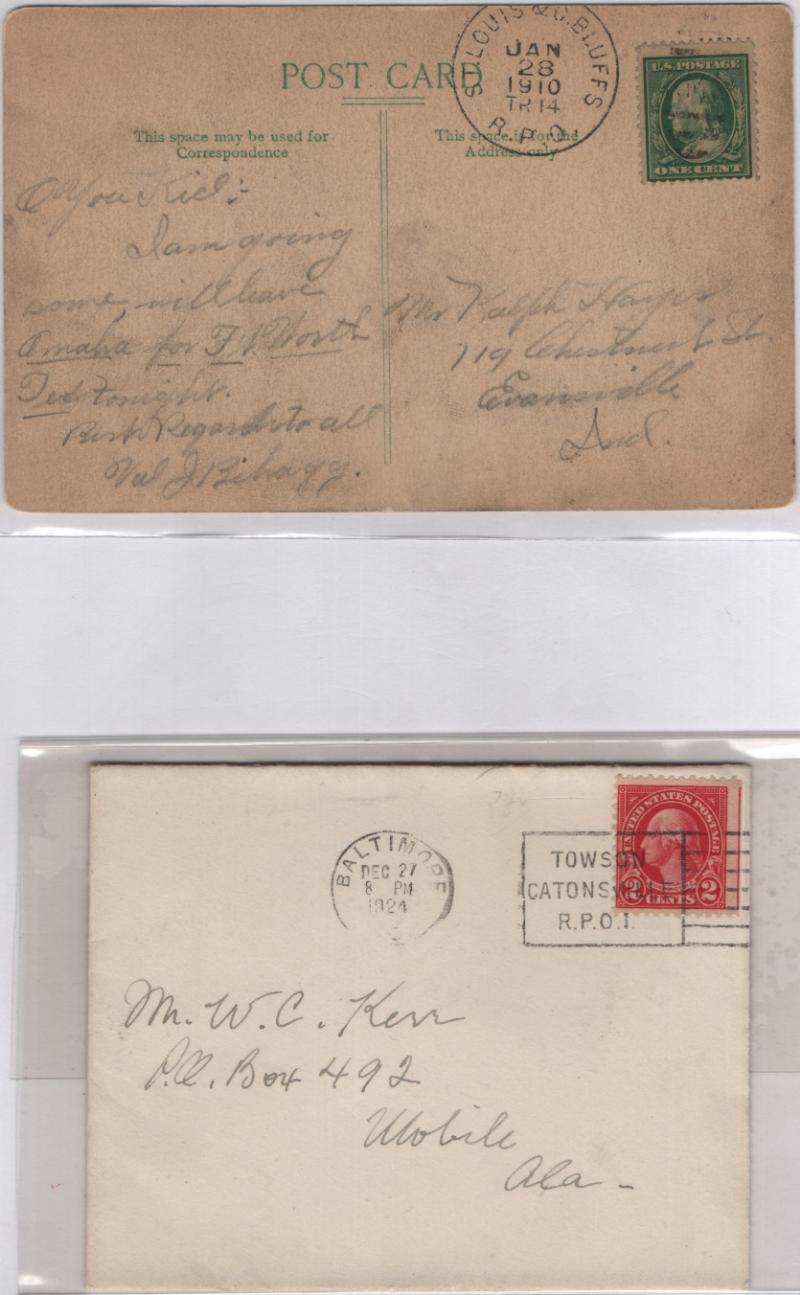 POST CARD
ST. LOUIS & C. BLUFFS
JAN
28
1910
TR 14
R.P.O.
U.S. POSTAGE
ONE CENT
This space may be used for
Correspondence
This space is for the
Address only
O You Kid:-
I am going
some, will leave
Omaha for Ft. Worth
Tex tonight.
Best Regards to all
Val J
Mr Ralph Hayes
719 Chestnut St.
Evansville
Ind.
BALTIMORE
DEC 27
8 PM
1924
TOWSON
CATONSVILLE
R.P.O.1.
UNITED STATES POSTAGE
2 CENTS 2
Mr. W. C. Kerr
P.O. Box 492
Mobile
Ala -